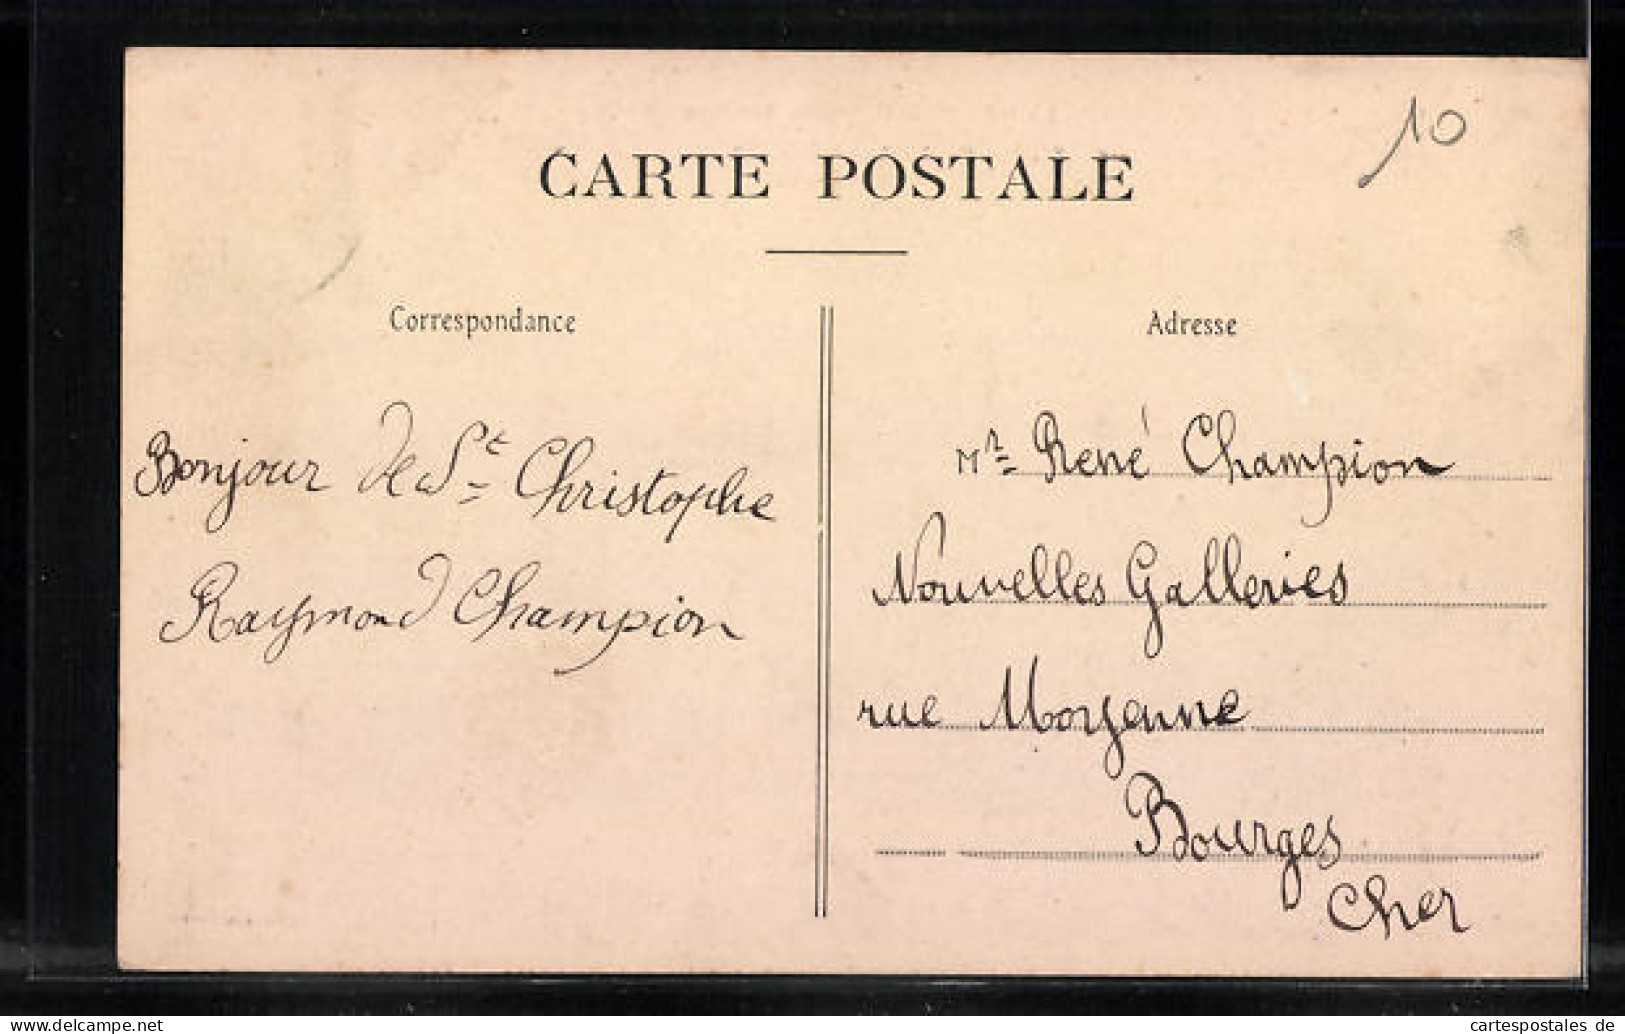 10
CARTE POSTALE
Correspondance
Bonjour de St Christophe
Raymond Champion
Adresse
Mr René Champion
Nouvelles Galleries
rue Moyenne
Bourges
Cher
cartespostales de